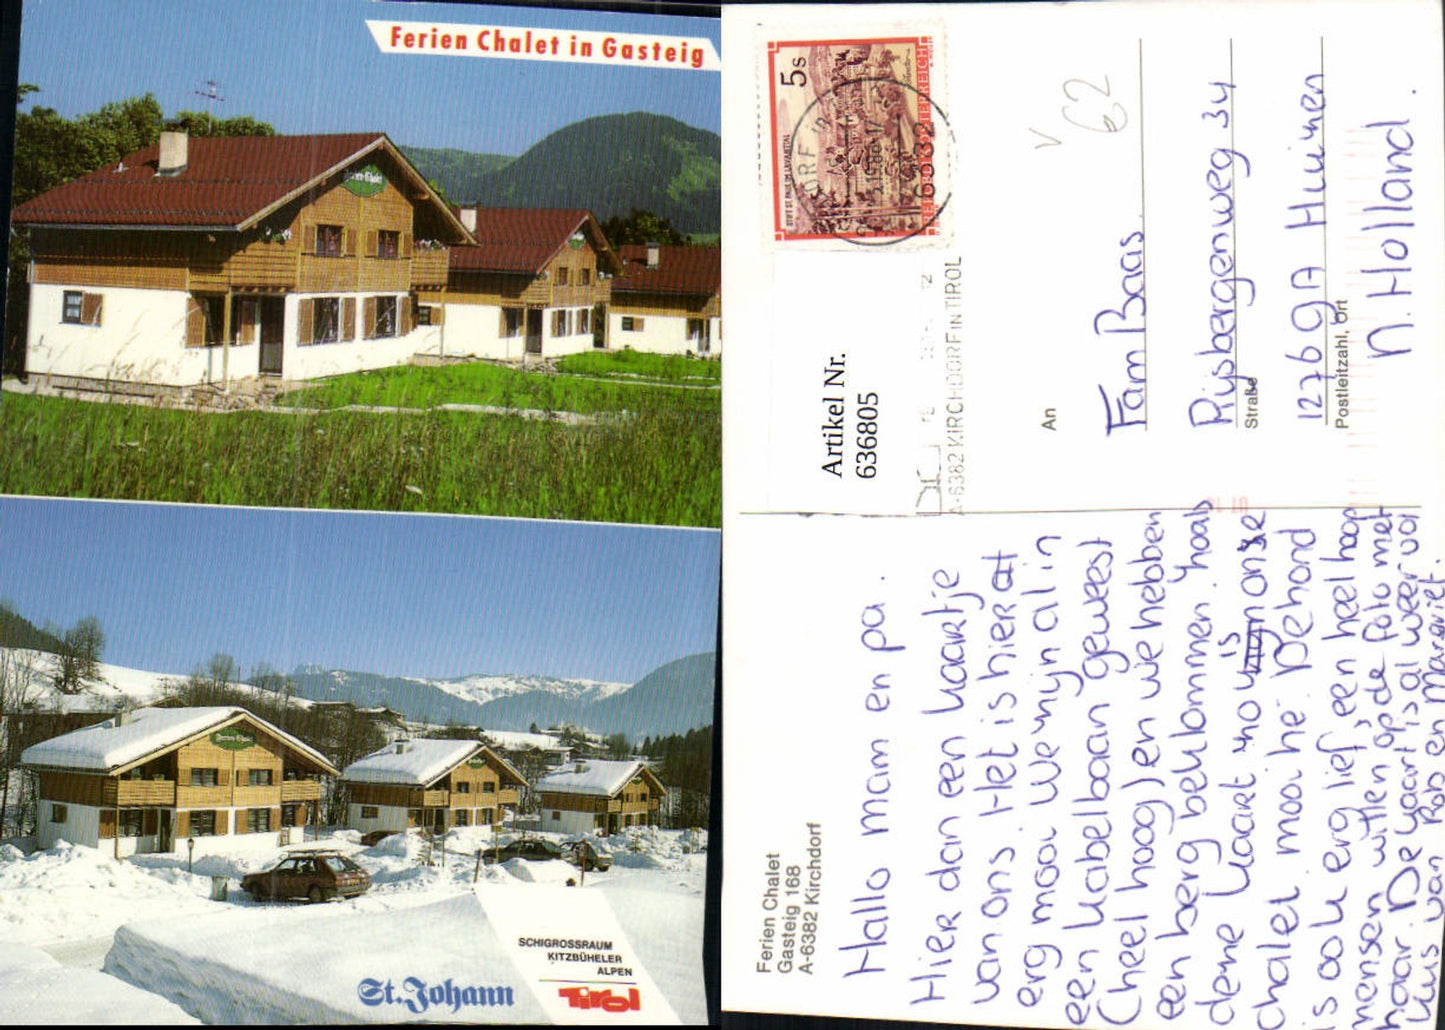 Ferien Chalet in Gasteig
Ferien-Chalet
SCHIGROSSRAUM
KITZBÜHELER
ALPEN
St. Johann
Tirol
5 S
STIFT ST. PAUL IM LAVANTTAL
REPUBLIK ÖSTERREICH
6382
A-6382 KIRCHDORF IN TIROL
Artikel Nr.
636805
V
62
An
Fam Baas
Rijsbergenweg 34
Straße
1276 GA Huizen
Postleitzahl, Ort
N. Holland.
Ferien Chalet
Gasteig 168
A-6382 Kirchdorf
Hallo mam en pa.
Hier dan een kaartje
van ons. Het is hier
erg mooi. We zijn al in
een kabelbaan geweest
(heel hoog) en we hebben
een berg beklommen.
deze kaart is onze
chalet mooi hè. De hond
is ook erg lief, een heel hoop
mensen willen op de foto met
haar. De kaart is al weer vol
Kus van Rob en Margriet.